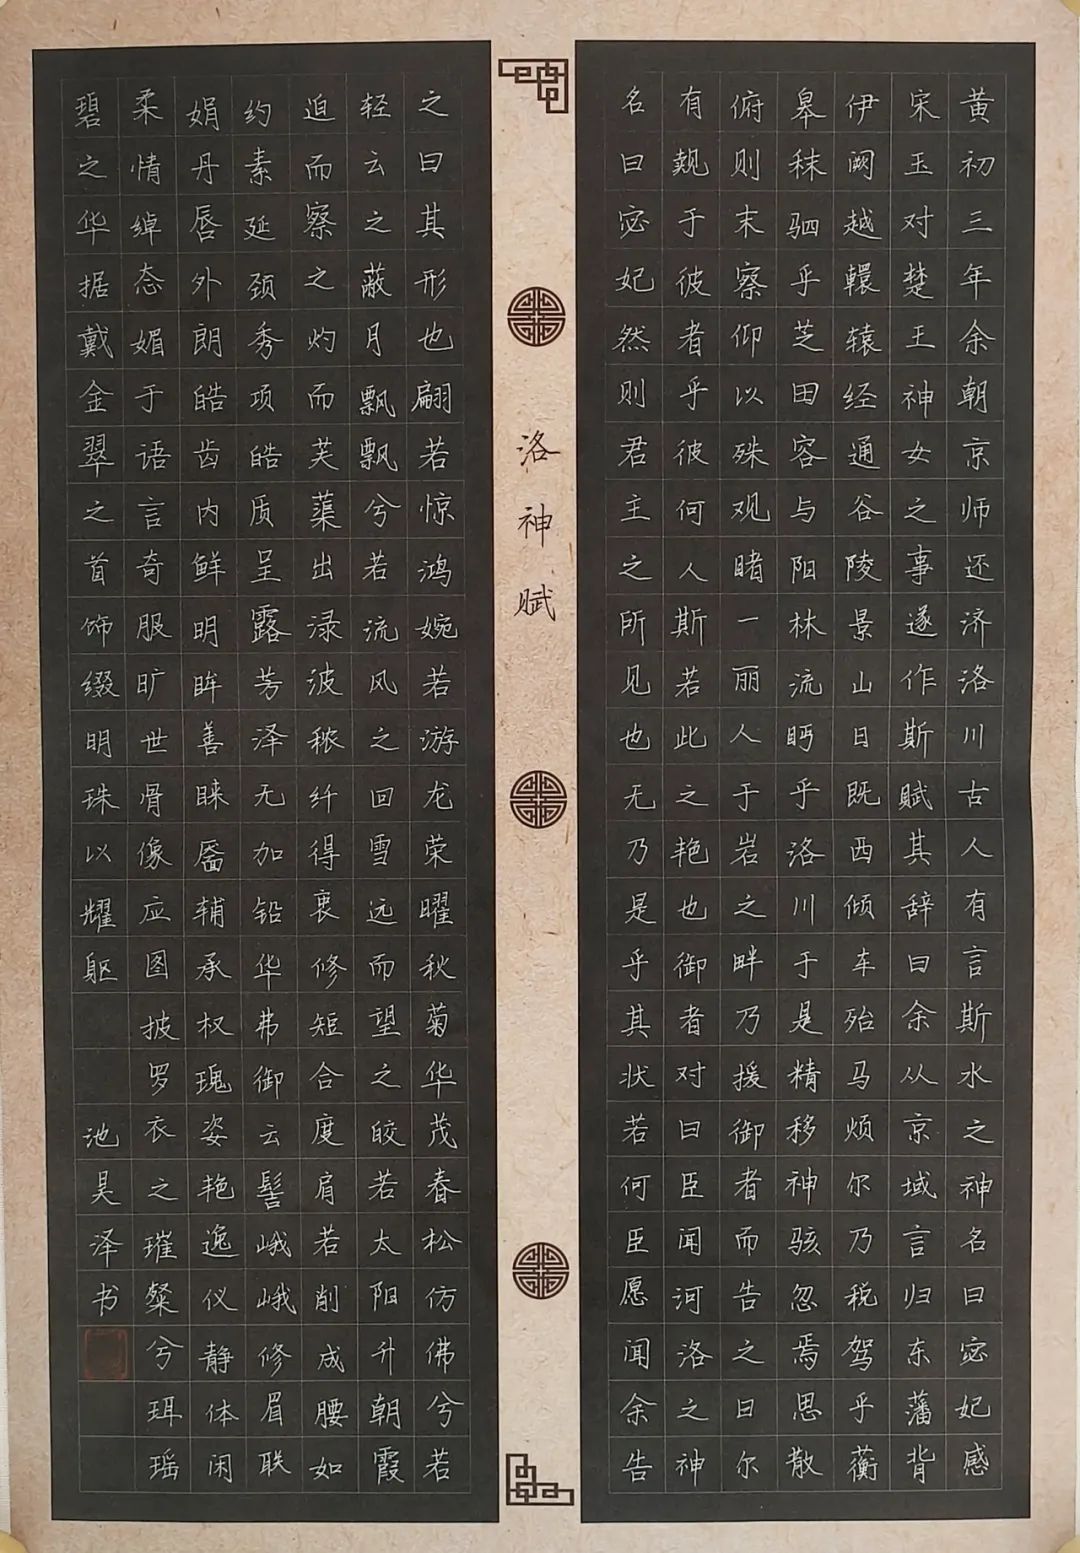 洛神赋
黄初三年余朝京师还济洛川古人有言斯水之神名曰宓妃感
宋玉对楚王神女之事遂作斯赋其辞曰余从京域言归东藩背
伊阙越轘辕经通谷陵景山日既西倾车殆马烦尔乃税驾乎蘅
皋秣驷乎芝田容与阳林流眄乎洛川于是精移神骇忽焉思散
俯则末察仰以殊观睹一丽人于岩之畔乃援御者而告之曰尔
有觌于彼者乎彼何人斯若此之艳也御者对曰臣闻河洛之神
名曰宓妃然则君主之所见也无乃是乎其状若何臣愿闻余告
之曰其形也翩若惊鸿婉若游龙荣曜秋菊华茂春松仿佛兮若
轻云之蔽月飘飘兮若流风之回雪远而望之皎若太阳升朝霞
迫而察之灼而芙蕖出渌波秾纤得衷修短合度肩若削成腰如
约素延颈秀项皓质呈露芳泽无加铅华弗御云髻峨峨修眉联
娟丹唇外朗皓齿内鲜明眸善睐靥辅承权瑰姿艳逸仪静体闲
柔情绰态媚于语言奇服旷世骨像应图披罗衣之璀粲兮珥瑶
碧之华据戴金翠之首饰缀明珠以耀躯
池昊泽书